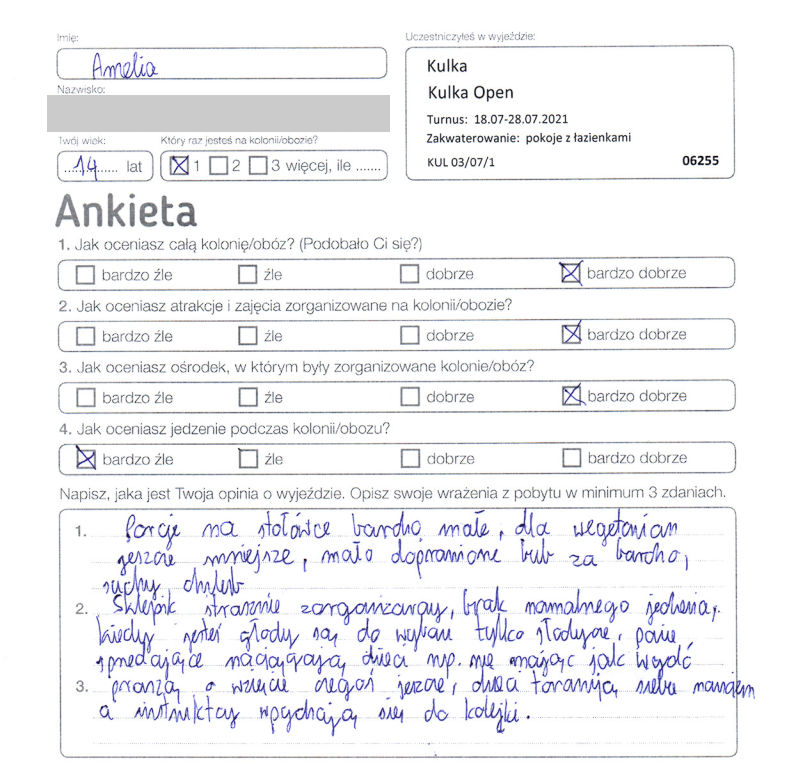 Imię:
Amelia
Nazwisko:
Twój wiek:
14 lat
Który raz jesteś na kolonii/obozie?
1 2 3 więcej, ile .......
Uczestniczyłeś w wyjeździe:
Kulka
Kulka Open
Turnus: 18.07-28.07.2021
Zakwaterowanie: pokoje z łazienkami
KUL 03/07/1 06255
Ankieta
1. Jak oceniasz całą kolonię/obóz? (Podobało Ci się?)
bardzo źle źle dobrze bardzo dobrze
2. Jak oceniasz atrakcje i zajęcia zorganizowane na kolonii/obozie?
bardzo źle źle dobrze bardzo dobrze
3. Jak oceniasz ośrodek, w którym były zorganizowane kolonie/obóz?
bardzo źle źle dobrze bardzo dobrze
4. Jak oceniasz jedzenie podczas kolonii/obozu?
bardzo źle źle dobrze bardzo dobrze
Napisz, jaka jest Twoja opinia o wyjeździe. Opisz swoje wrażenia z pobytu w minimum 3 zdaniach.
1. Porcje na stołówce bardzo małe, dla wegetarian
jeszcze mniejsze, mało doprawione lub za bardzo,
suchy chleb
2. Sklepik strasznie zorganizowany, brak normalnego jedzenia,
kiedy jesteś głodny są do wyboru tylko słodycze, panie
sprzedające naciągają dzieci np. nie mając jak wydać
3. proszą o wzięcie czegoś jeszcze, dzieci taranują siebie nawzajem
a instruktorzy wpychają się do kolejki.